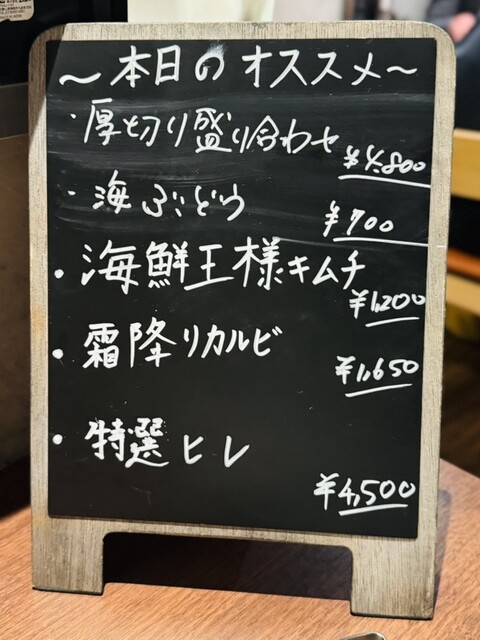 ～本日のオススメ～
・厚切り盛り合わせ
¥4,800
・海ぶどう
¥700
・海鮮王様キムチ
¥1,200
・霜降りカルビ
¥1,650
・特選ヒレ
¥4,500